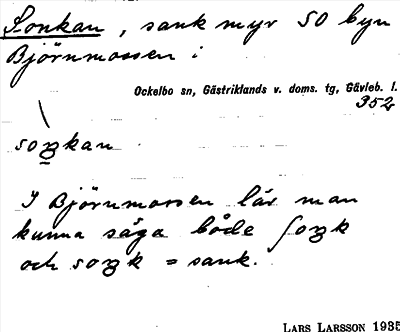 Sonkan, sank myr SO byn
Björnmossen i
Ockelbo sn, Gästriklands v. doms. tg, Gävleb. l.
352
soŋkan
I Björnmossen lär man
kunna säga både ʃoŋk
och soŋk = sank.
LARS LARSSON 1935